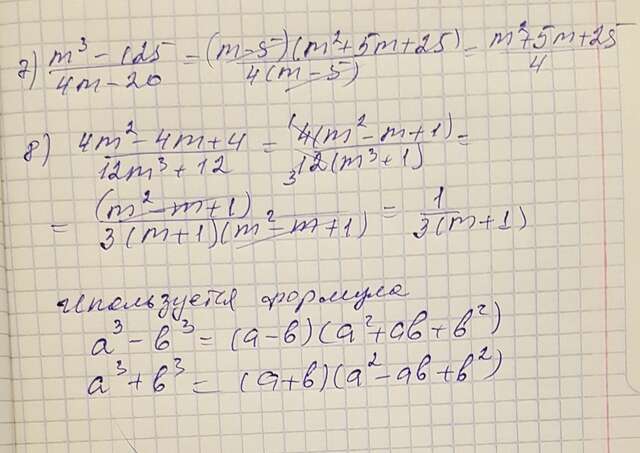 7) (m³ - 125)/(4m - 20) = (m - 5)(m² + 5m + 25)/4(m - 5) = (m² + 5m + 25)/4
8) (4m² - 4m + 4)/(12m³ + 12) = ¹4(m² - m + 1)/₃12(m³ + 1) =
= (m² - m + 1)/3(m + 1)(m² - m + 1) = 1/3(m + 1)
используется формула
a³ - b³ = (a - b)(a² + ab + b²)
a³ + b³ = (a + b)(a² - ab + b²)